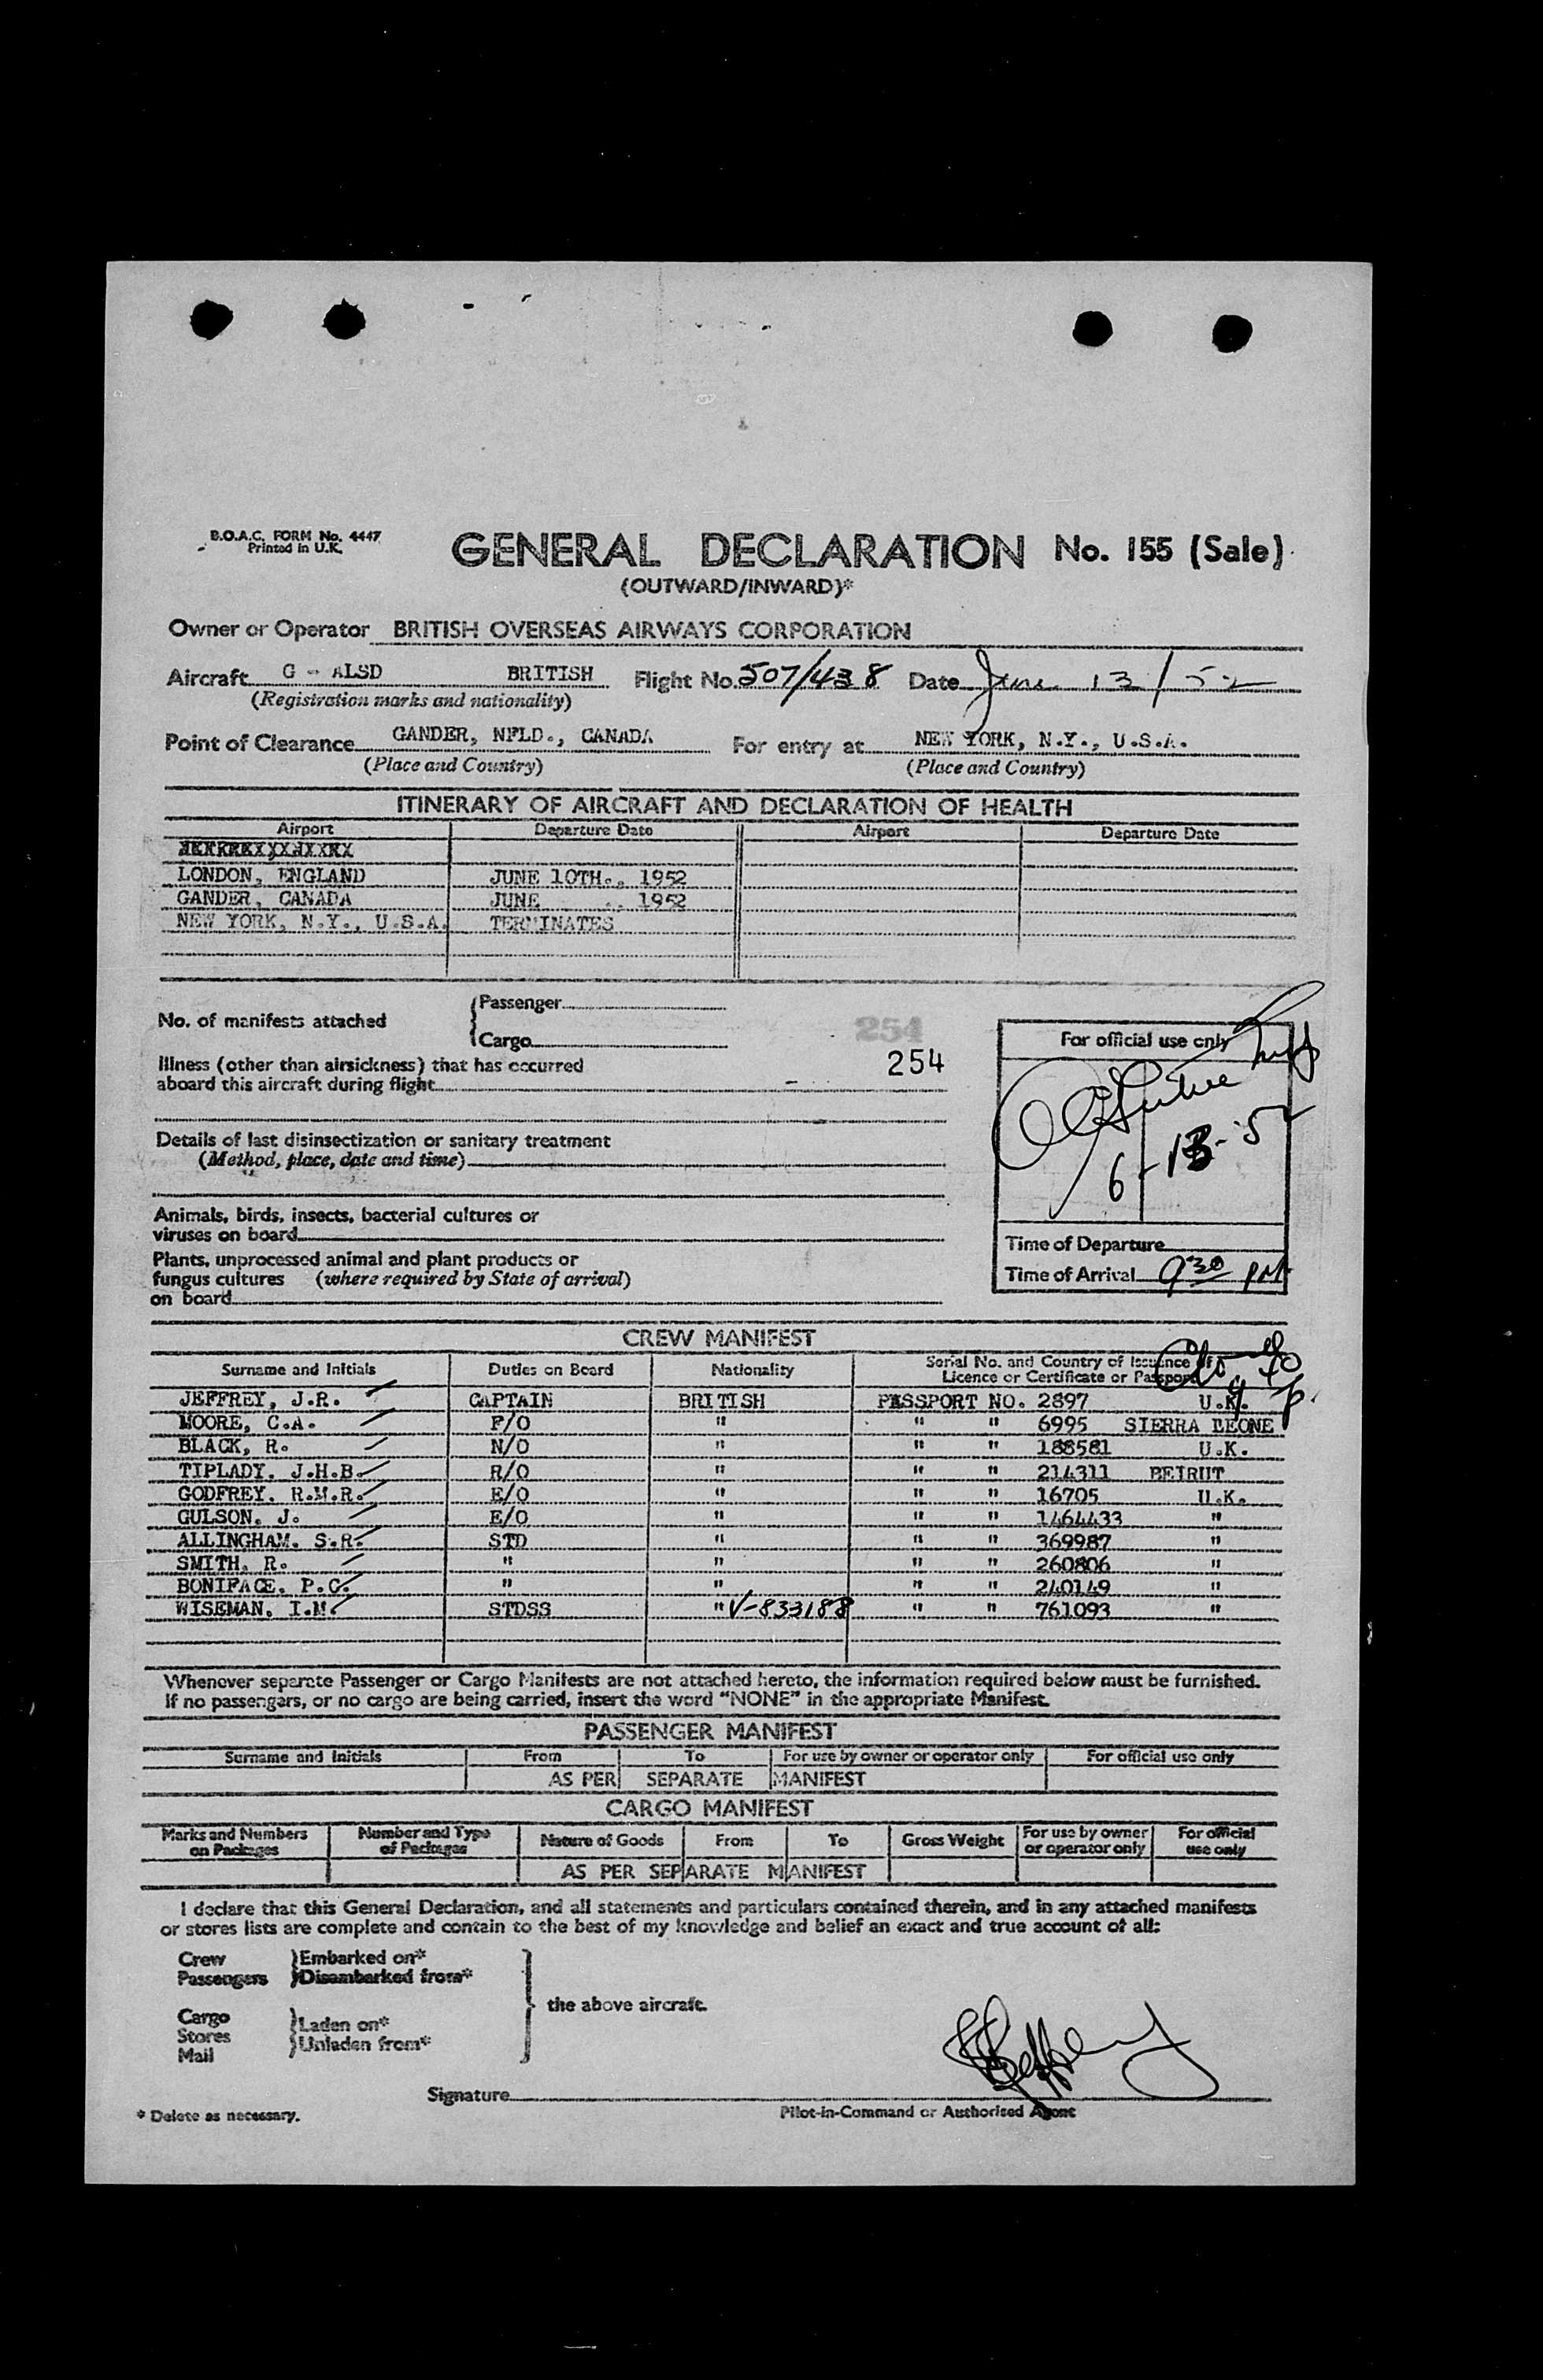 B.O.A.C. FORM No. 4447
Printed in U.K.
GENERAL DECLARATION No. 155 (Sale)
(OUTWARD/INWARD)*
Owner or Operator BRITISH OVERSEAS AIRWAYS CORPORATION
Aircraft G - ALSD BRITISH Flight No. 507/438 Date June 13/52
(Registration marks and nationality)
Point of Clearance GANDER, NFLD., CANADA For entry at NEW YORK, N.Y., U.S.A.
(Place and Country) (Place and Country)
ITINERARY OF AIRCRAFT AND DECLARATION OF HEALTH
Airport Departure Date Airport Departure Date
LONDON, ENGLAND JUNE 10TH., 1952
GANDER, CANADA JUNE ., 1952
NEW YORK, N.Y., U.S.A. TERMINATES
No. of manifests attached
Passenger
Cargo
254
Illness (other than airsickness) that has occurred
aboard this aircraft during flight -
254
Details of last disinsectization or sanitary treatment
(Method, place, date and time)
Animals, birds, insects, bacterial cultures or
viruses on board
Plants, unprocessed animal and plant products or
fungus cultures (where required by State of arrival)
on board
For official use only
6-13-52
Time of Departure
Time of Arrival 9 30 PM
CREW MANIFEST
Surname and Initials Duties on Board Nationality Serial No. and Country of Issuance of
Licence or Certificate or Passport
JEFFREY, J.R. CAPTAIN BRITISH PASSPORT NO. 2897 U.K.
MOORE, C.A. F/O " " " 6995 SIERRA LEONE
BLACK, R. N/O " " " 188581 U.K.
TIPLADY, J.H.B. R/O " " " 214311 BEIRUT
GODFREY, R.M.R. E/O " " " 16705 U.K.
GULSON, J. E/O " " " 1464433 "
ALLINGHAM, S.R. STD " " " 369987 "
SMITH, R. " " " " 260806 "
BONIFACE, P.C. " " " " 240149 "
WISEMAN, I.M. STDSS " V-833188 " " 761093 "
Whenever separate Passenger or Cargo Manifests are not attached hereto, the information required below must be furnished.
If no passengers, or no cargo are being carried, insert the word "NONE" in the appropriate Manifest.
PASSENGER MANIFEST
Surname and Initials From To For use by owner or operator only For official use only
AS PER SEPARATE MANIFEST
CARGO MANIFEST
Marks and Numbers on Packages Number and Type of Packages Nature of Goods From To Gross Weight For use by owner or operator only For official use only
AS PER SEPARATE MANIFEST
I declare that this General Declaration, and all statements and particulars contained therein, and in any attached manifests
or stores lists are complete and contain to the best of my knowledge and belief an exact and true account of all:
Crew Embarked on*
Passengers Disembarked from*
the above aircraft.
Cargo Laden on*
Stores Unladen from*
Mail
Signature
* Delete as necessary.
Pilot-in-Command or Authorised Agent